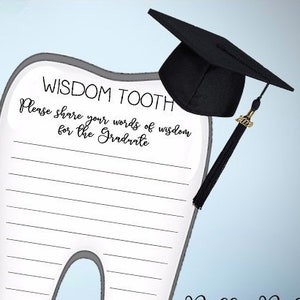 WISDOM TOOTH
Please share your words of wisdom
for the Graduate